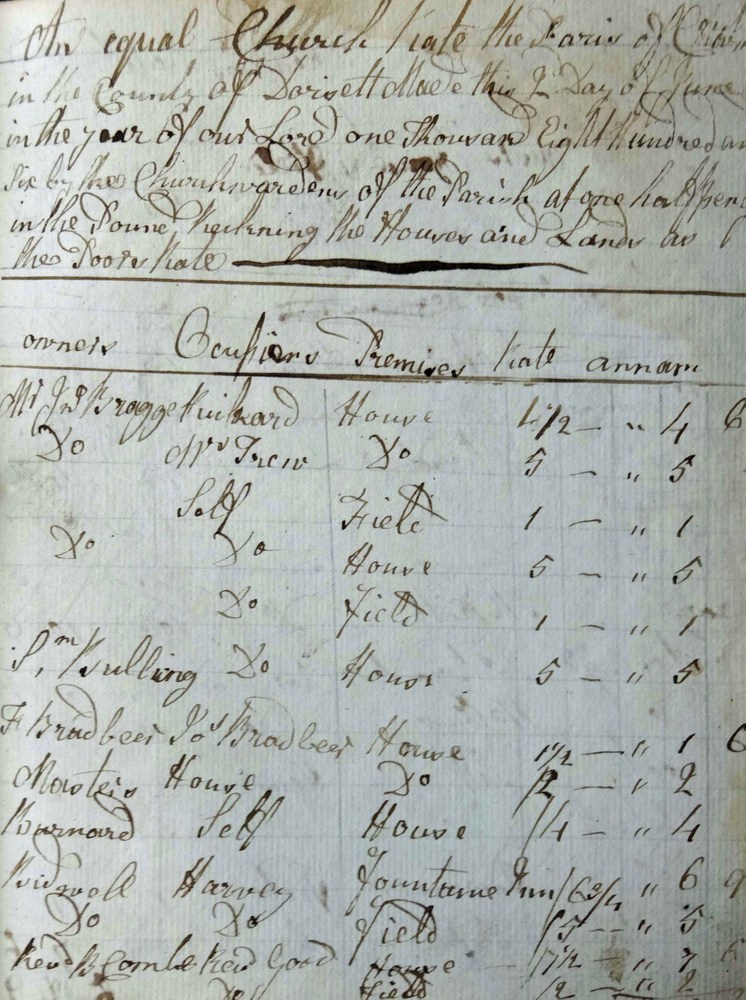 An equal Church Rate the Paris of
in the County of Dorsett Made this 2 Day of June
in the year of our Lord one Thousand Eight Hundred an
Six by the Churchwardens of the Parish at one halfpen
in the Pound, Reckning the Houses and Lands as
the Poors Rate
owners Occupiers Premises Rate annam
Mr Jno Bragge House 4 1/2 — " 4 6
Do Mrs Trew Do 5 — " 5
Self Field 1 — " 1
Do Do House 5 — " 5
Do Field 1 — " 1
Sm Bulling Do House 5 — " 5
F Bradbeer Jos Bradbeer House 1 1/2 — " 1 6
Masters House Do /2 — " 2
Burnard Self House /4 — " 4
Bidwell Harvey Fountame Inn /6 3/4 " 6 9
Do Do Field /5 — " 5
Revd B Combe Revd Good House — /7 1/2 — " 7 6
Do Field /2 — " 2